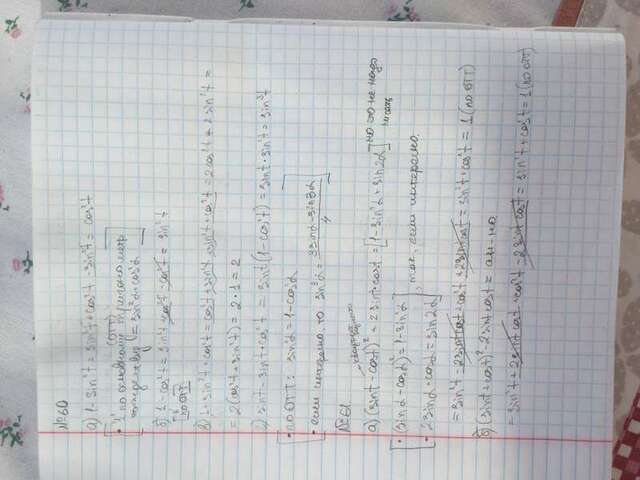 №60
а) 1 - sin²t = sin²t + cos²t - sin²t = cos²t
• "1" по основному (ОТТ) тригонометр.
тождеству = sin²α + cos²α
б) 1 - cos²t = sin²t + cos²t - cos²t = sin²t
по ОТТ
в) 1 + sin²t + cos²t = cos²t + sin²t + sin²t + cos²t = 2cos²t + 2sin²t =
= 2(cos²t + sin²t) = 2·1 = 2
г) sint - sint·cos²t = sint(1 - cos²t) = sint·sin²t = sin³t
• по ОТТ: sin²α = 1 - cos²α
• если интересно, то sin³α = (3sinα - sin3α)/4
№61
а) (sint - cost)² + 2sint·cost = [1 - sin²α + sin2α] но это не надо
писать
• (sinα - cosα)² = 1 - sin²α
• 2sinα·cosα = sin2α , так, если интересно
= sin²t - 2sint cost + cos²t + 2sint cost = sin²t + cos²t = 1 (по ОТТ)
б) (sint + cost)² - 2sint cost = ан-но
= sin²t + 2sint cost + cos²t - 2sint cost = sin²t + cos²t = 1 (по ОТТ)